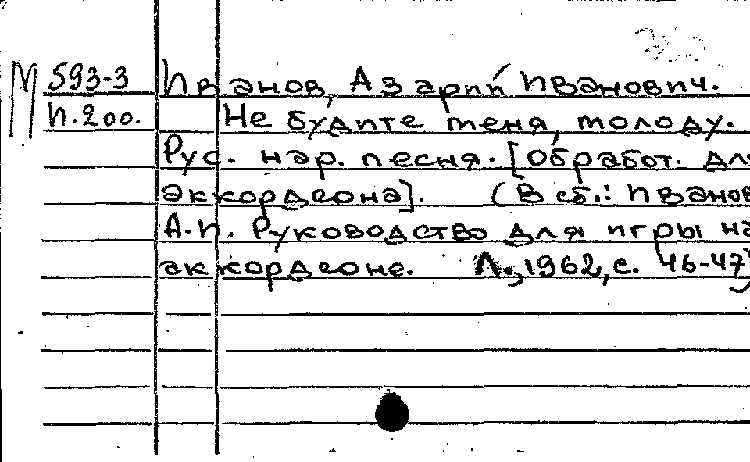 М 593-3 Иванов, Азарий Иванович.
И.200. Не будите меня, молоду.
Рус. нар. песня. [Обработ. для
аккордеона]. (В сб.: Иванов
А.И. Руководство для игры на
аккордеоне. Л., 1962, с. 46-47)